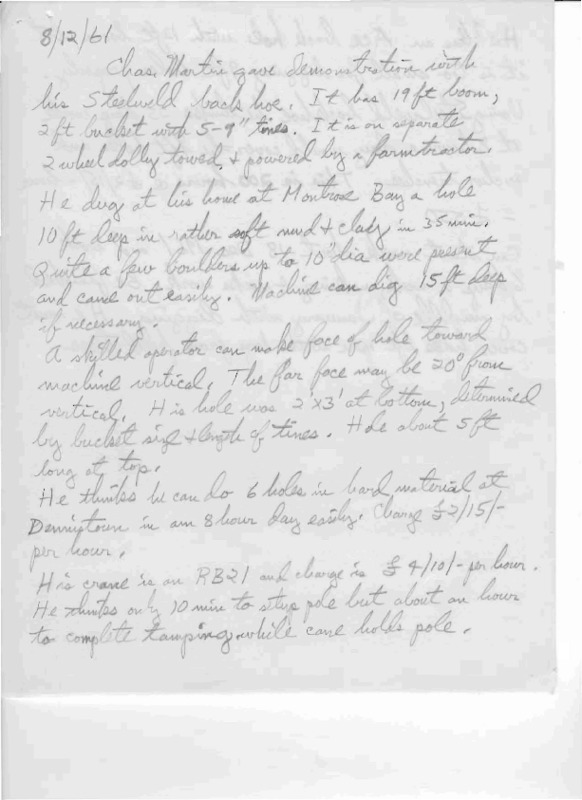 8/12/61
Chas. Martin gave demonstration with
his Steelweld back hoe. It has 19 ft boom,
2 ft bucket with 5-9" tines. It is on separate
2 wheel dolly towed, + powered by a farm tractor.
He dug at his home at Montrose Bay a hole
10 ft deep in rather soft mud + clay in 35 min.
Quite a few boulders up to 10" dia were present
and came out easily. Machine can dig 15 ft deep
if necessary.
A skilled operator can make face of hole toward
machine vertical. The far face may be 20° from
vertical. His hole was 2'x3' at bottom, determined
by bucket size + length of tines. Hole about 5 ft
long at top.
He thinks he can do 6 holes in hard material at
Dennistown in an 8 hour day easily. Charge £2/15/-
per hour.
His crane is an RB21 and charge is £4/10/- per hour.
He thinks only 10 min to pole but about an hour
to complete tamping while cane holds pole.